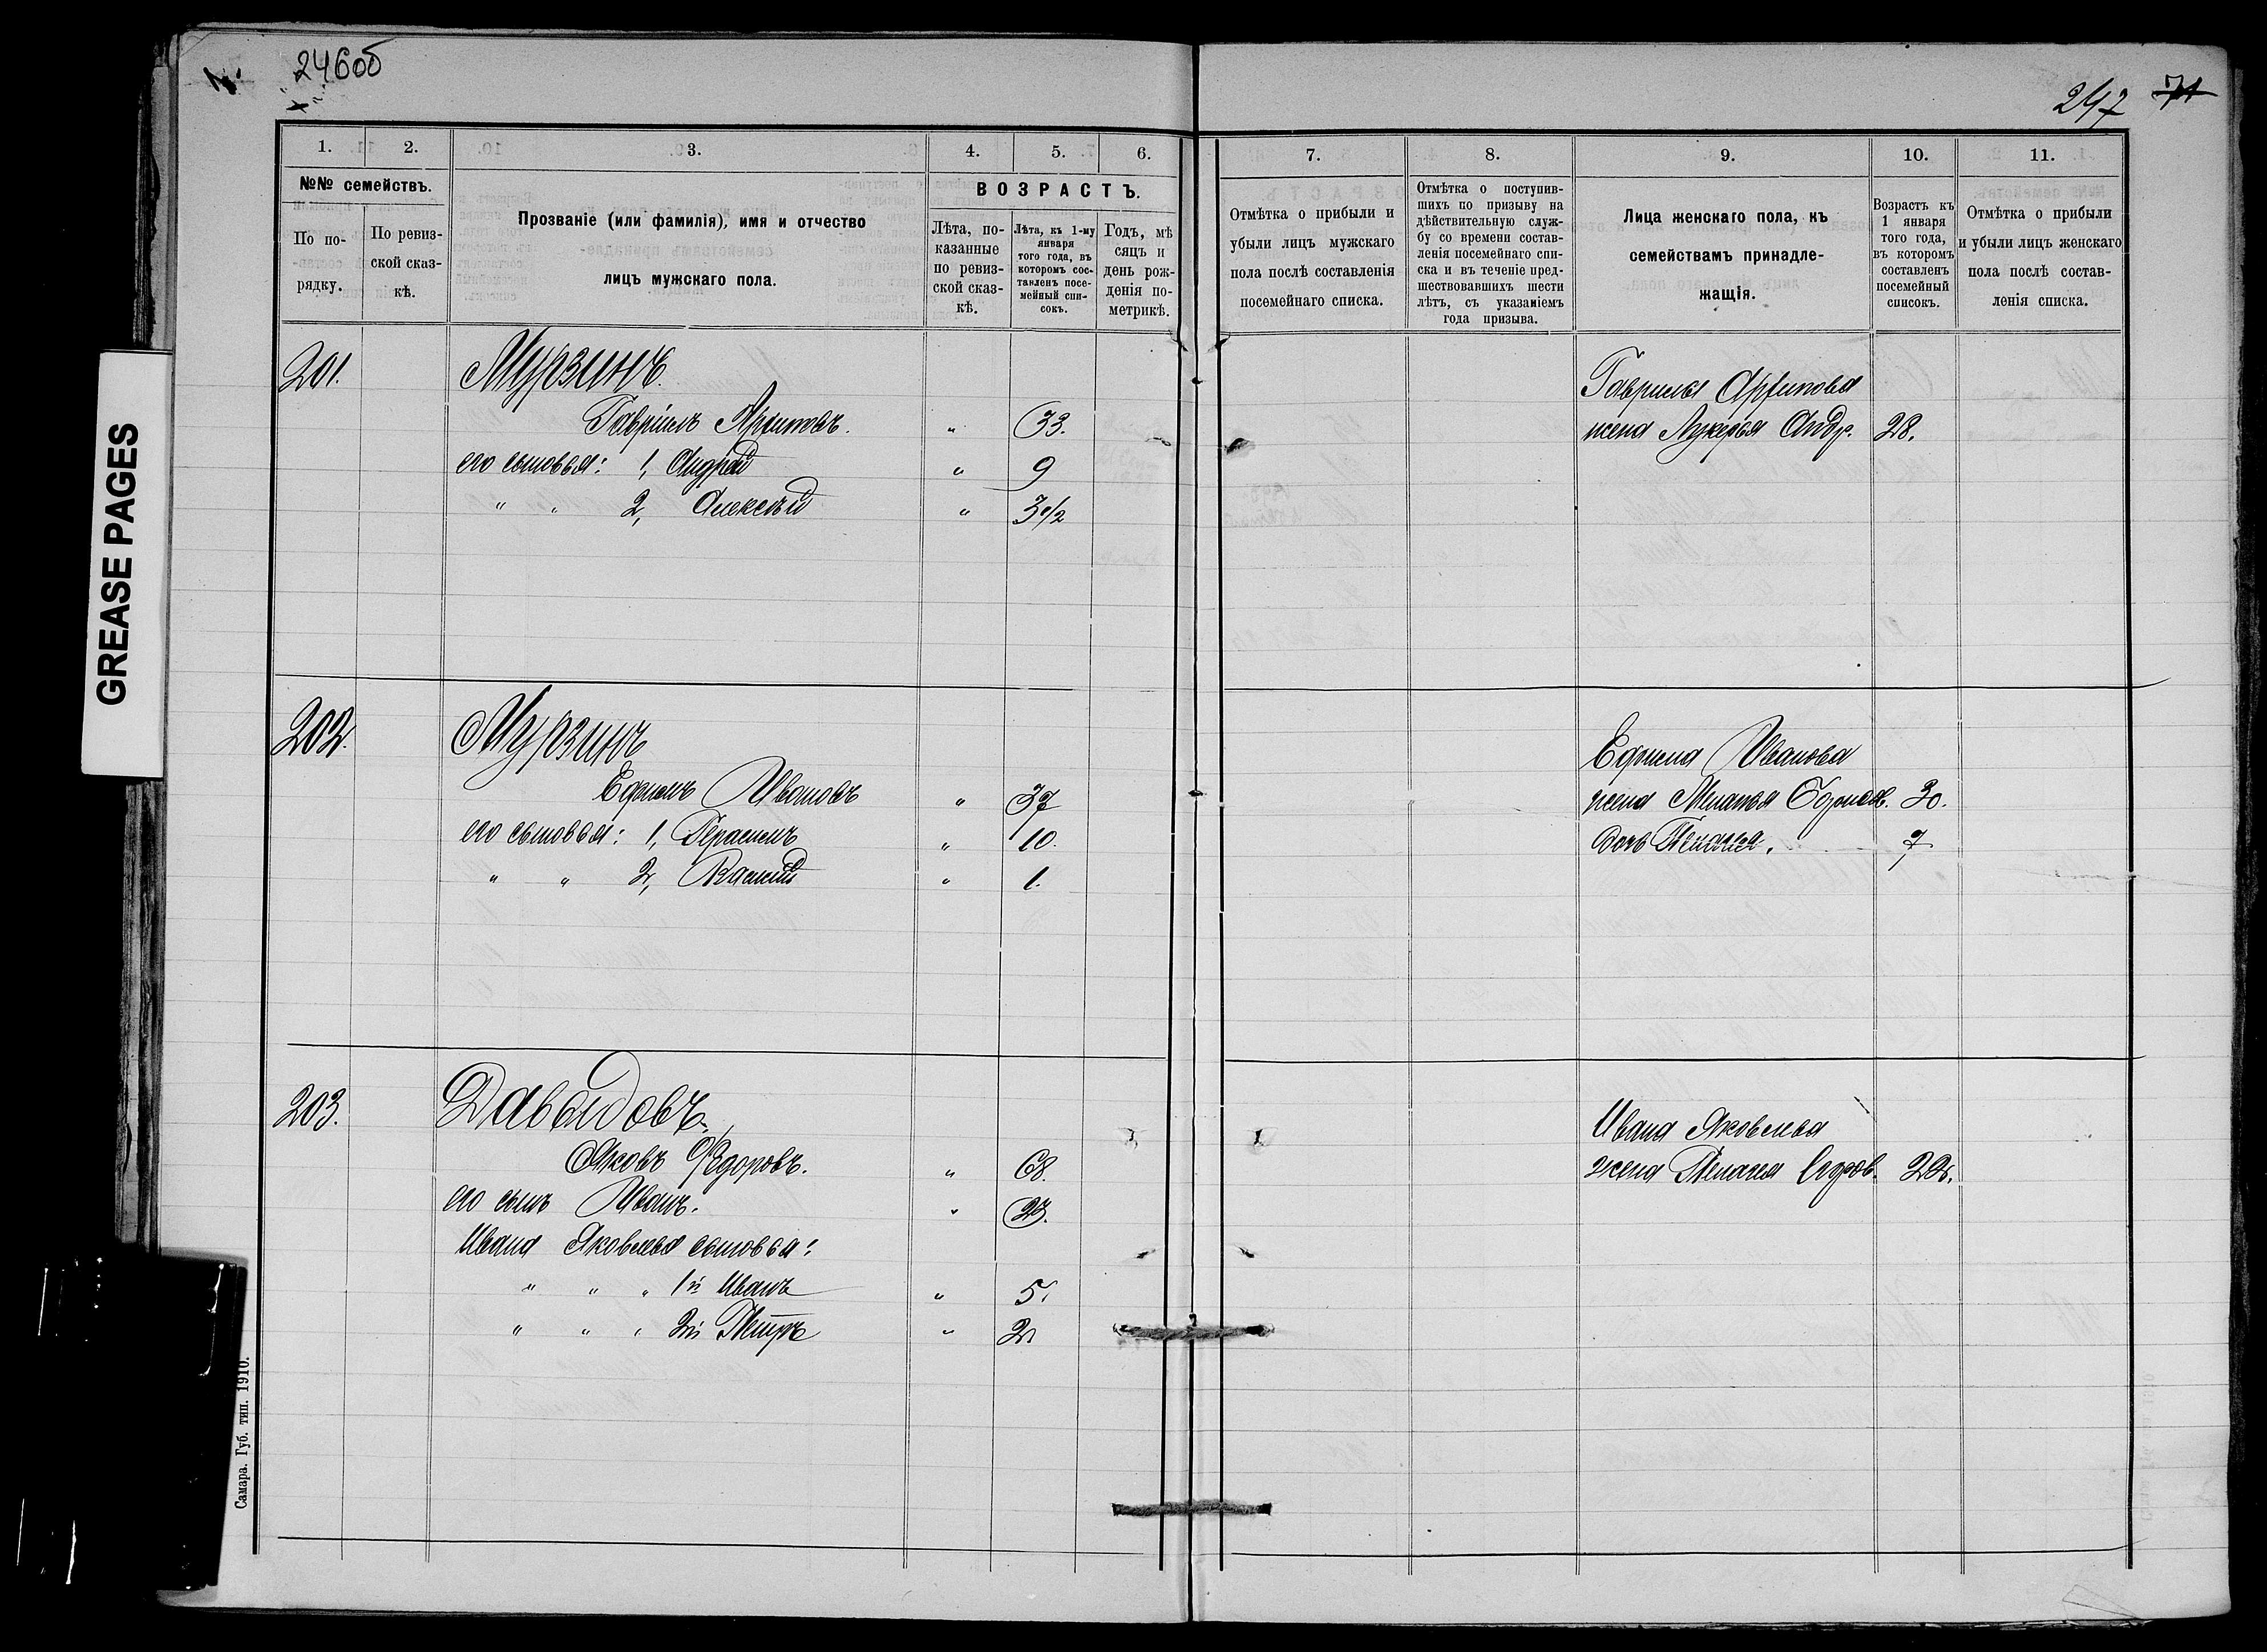 246об
247 71
GREASE PAGES
1. 2. 3. 4. 5. 6.
№№ семействъ.
По порядку.
По ревизской сказкѣ.
Прозваніе (или фамилія), имя и отчество
лицъ мужскаго пола.
ВОЗРАСТЪ.
Лѣта, по-
казанные
по ревиз-
ской сказ-
кѣ.
Лѣта, къ 1-му
января
того года, въ
которомъ сос-
тавленъ посе-
мейный спи-
сокъ.
Годъ, мѣ
сяцъ и
день рож-
денія по-
метрикѣ.
7. 8. 9. 10. 11.
Отмѣтка о прибыли и
убыли лицъ мужскаго
пола послѣ составленія
посемейнаго списка.
Отмѣтка о поступив-
шихъ по призыву на
дѣйствительную служ-
бу со времени состав-
ленія посемейнаго спи-
ска и въ теченіе пред-
шествовавшихъ шести
лѣтъ, съ указаніемъ
года призыва.
Лица женскаго пола, къ
семействамъ принадле-
жащія.
Возрастъ къ
1 января
того года,
въ которомъ
составленъ
посемейный
списокъ.
Отмѣтка о прибыли
и убыли лицъ женскаго
пола послѣ состав-
ленія списка.
201. Мурзинъ.
Гавріилъ Архиповъ. " 33.
его сыновья: 1, Андрей " 9
" " 2, Алексѣй " 3 1/2
Гаврила Архипова
жена Лукерья Андр. 28.
202. Мурзинъ
Ефимъ Ивановъ " 37
его сыновья: 1, Герасимъ " 10.
" " 2, Василій " 1.
Ефима Иванова
жена Меланья 30.
дочь Пелагея. 7
203. Давыдовъ.
Яковъ Ѳедоровъ. " 68.
его сынъ Иванъ. " 23.
Ивана Яковлева сыновья:
" " " 1й Иванъ " 5.
" " " 2й Петръ " 2
Ивана Яковлева
жена Пелагея 22.
Самара. Губ. тип. 1910.